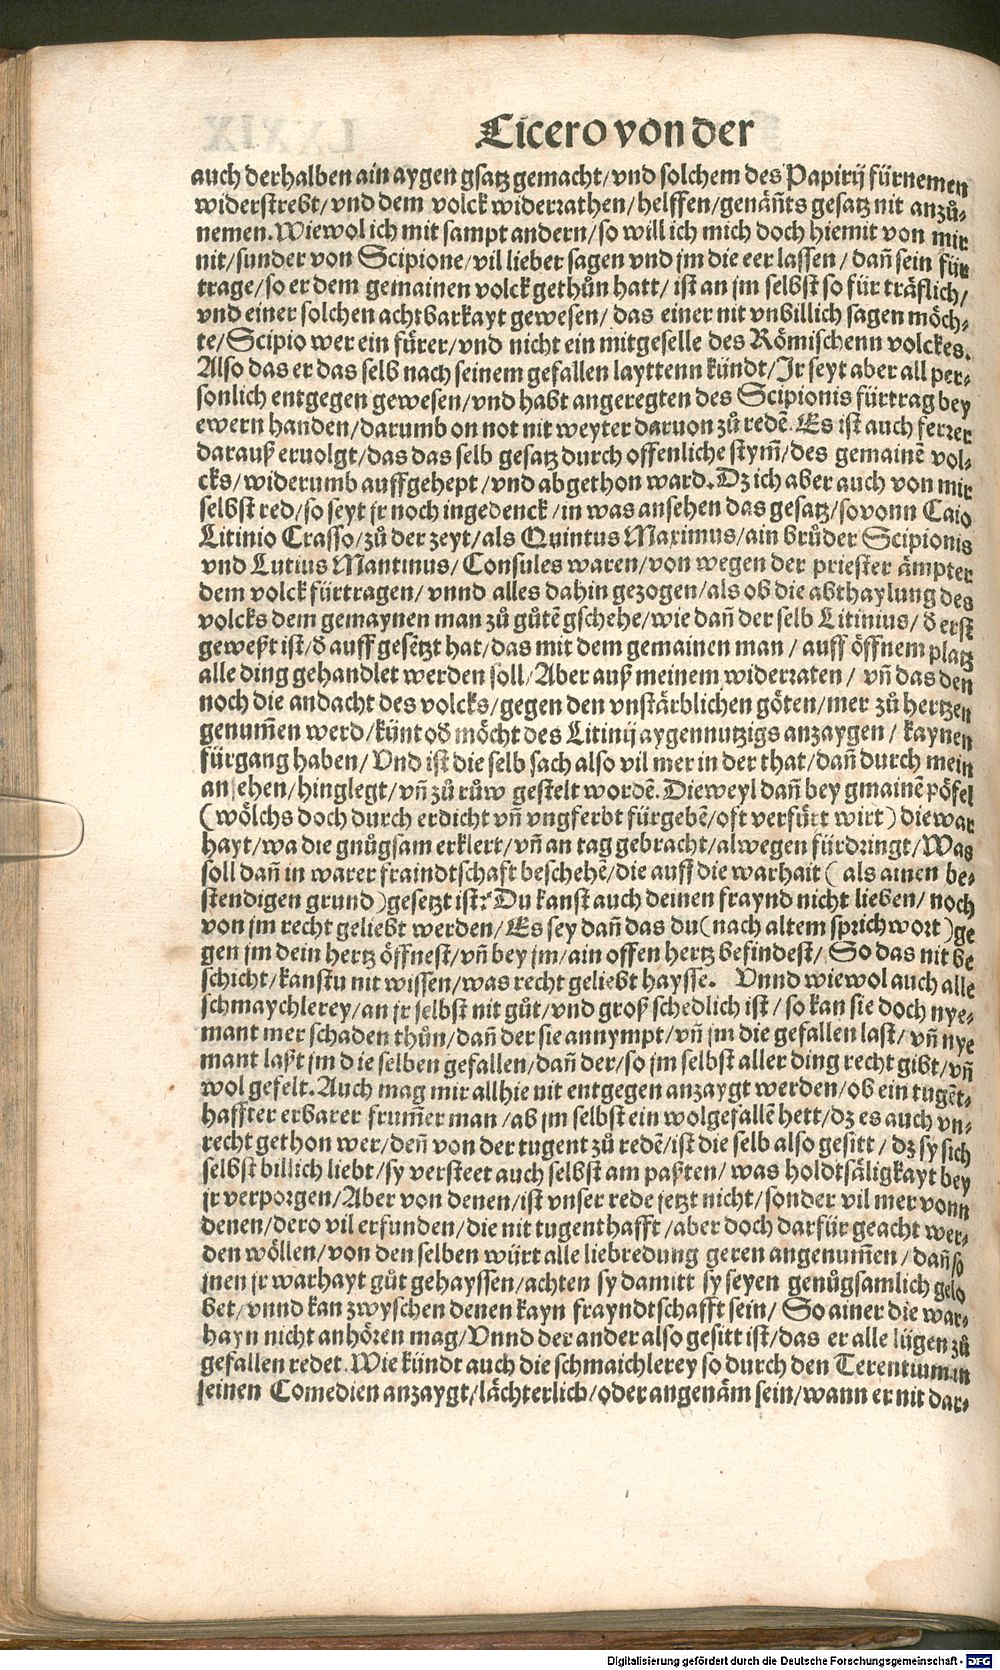 Cicero von der
auch derhalben ain aygen gsatz gemacht/vnd solchem des Papirij fürnemen
widerstrebt/vnd dem volck widerrathen/helffen/genāñts gesatz nit anzů-
nemen. Wiewol ich mit sampt andern/so will ich mich doch hiemit von mir
nit/sunder von Scipione/vil lieber sagen vnd jm die eer lassen/ dañ sein für
trage/so er dem gemainen volck gethůn hatt/ ist an jm selbst so für träflich/
vnd einer solchen achtbarkayt gewesen/ das einer nit vnbillich sagen möch-
te/Scipio wer ein fürer/vnd nicht ein mitgeselle des Römischenn volckes.
Also das er das selb nach seinem gefallen layttenn kündt/Ir seyt aber all per-
sonlich entgegen gewesen/vnd habt angeregten des Scipionis fürtrag bey
ewern handen/darumb on not nit weyter daruon zů redē. Es ist auch ferrer
darauß eruolgt/das das selb gesatz durch offenliche stym̄/des gemainē vol-
cks/widerumb auffgehept/vnd abgethon ward. Dz ich aber auch von mir
selbst red/so seyt jr noch ingedenck/in was ansehen das gesatz/so vonn Caio
Litinio Crasso/zů der zeyt/als Quintus Maximus/ain brůder Scipionis
vnd Lutius Mantinus/Consules waren/von wegen der priester ämpter
dem volck fürtragen/ vnnd alles dahin gezogen/als ob die abthaylung des
volcks dem gemaynen man zů gůtē gschehe/wie dañ der selb Litinius/ d̄ erst
geweßt ist/d̄ auff gesetzt hat/das mit dem gemainen man/ auff öffnem platz
alle ding gehandlet werden soll/Aber auß meinem widerraten/ vñ das den
noch die andacht des volcks/gegen den vnstärblichen göten/mer zů hertzen
genum̄en werd/künt od̄ möcht des Litinij aygennutzigs anzaygen/ kaynen
fürgang haben/ Vnd ist die selb sach also vil mer in der that/dañ durch mein
ansehen/hinglegt/vñ zů růw gestelt wordē. Dieweyl dañ bey gmainē pöfel
(wölchs doch durch erdicht vñ vngferbt fürgebē/oft verfürt wirt) die war
hayt/wa die gnůgsam erklert/vñ an tag gebracht/alwegen fürdringt/Was
soll dañ in warer fraindtschaft beschehē/die auff die warhait ( als ainen be-
stendigen grund )gesetzt ist? Du kanst auch deinen fraynd nicht lieben/ noch
von jm recht geliebt werden/ Es sey dañ das du(nach altem sprichwort )ge
gen jm dein hertz öffnest/vñ bey jm/ain offen hertz befindest/ So das nit be
schicht/kanstu nit wissen/was recht geliebt haysse. Vnnd wiewol auch alle
schmaychlerey/an jr selbst nit gůt/vnd groß schedlich ist/ so kan sie doch nye-
mant mer schaden thůn/dañ der sie annympt/vñ jm die gefallen last/ vñ nye
mant laßt jm die selben gefallen/dañ der/so jm selbst aller ding recht gibt/vñ
wol gefelt. Auch mag mir allhie nit entgegen anzaygt werden/ob ein tugēt-
haffter erbarer frum̄er man/ab jm selbst ein wolgefallē hett/dz es auch vn-
recht gethon wer/deñ von der tugent zů redē/ist die selb also gesitt/ dz sy sich
selbst billich liebt/sy versteet auch selbst am paßten/ was holdtsäligkayt bey
jr verporgen/Aber von denen/ist vnser rede jetzt nicht/sonder vil mer vonn
denen/dero vil erfunden/die nit tugenthafft/aber doch darfür geacht wer-
den wöllen/von den selben würt alle liebredung geren angenum̄en/ dañ so
jnen jr warhayt gůt gehayssen/achten sy damitt sy seyen genůgsamlich gelo
bet/vnnd kan zwyschen denen kayn frayndtschafft sein/ So ainer die war-
hayn nicht anhören mag/Vnnd der ander also gesitt ist/das er alle lügen zů
gefallen redet. Wie kündt auch die schmaichlerey so durch den Terentium in
seinen Comedien anzaygt/lächterlich/oder angenäm sein/wann er nit dar-
Digitalisierung gefördert durch die Deutsche Forschungsgemeinschaft - DFG